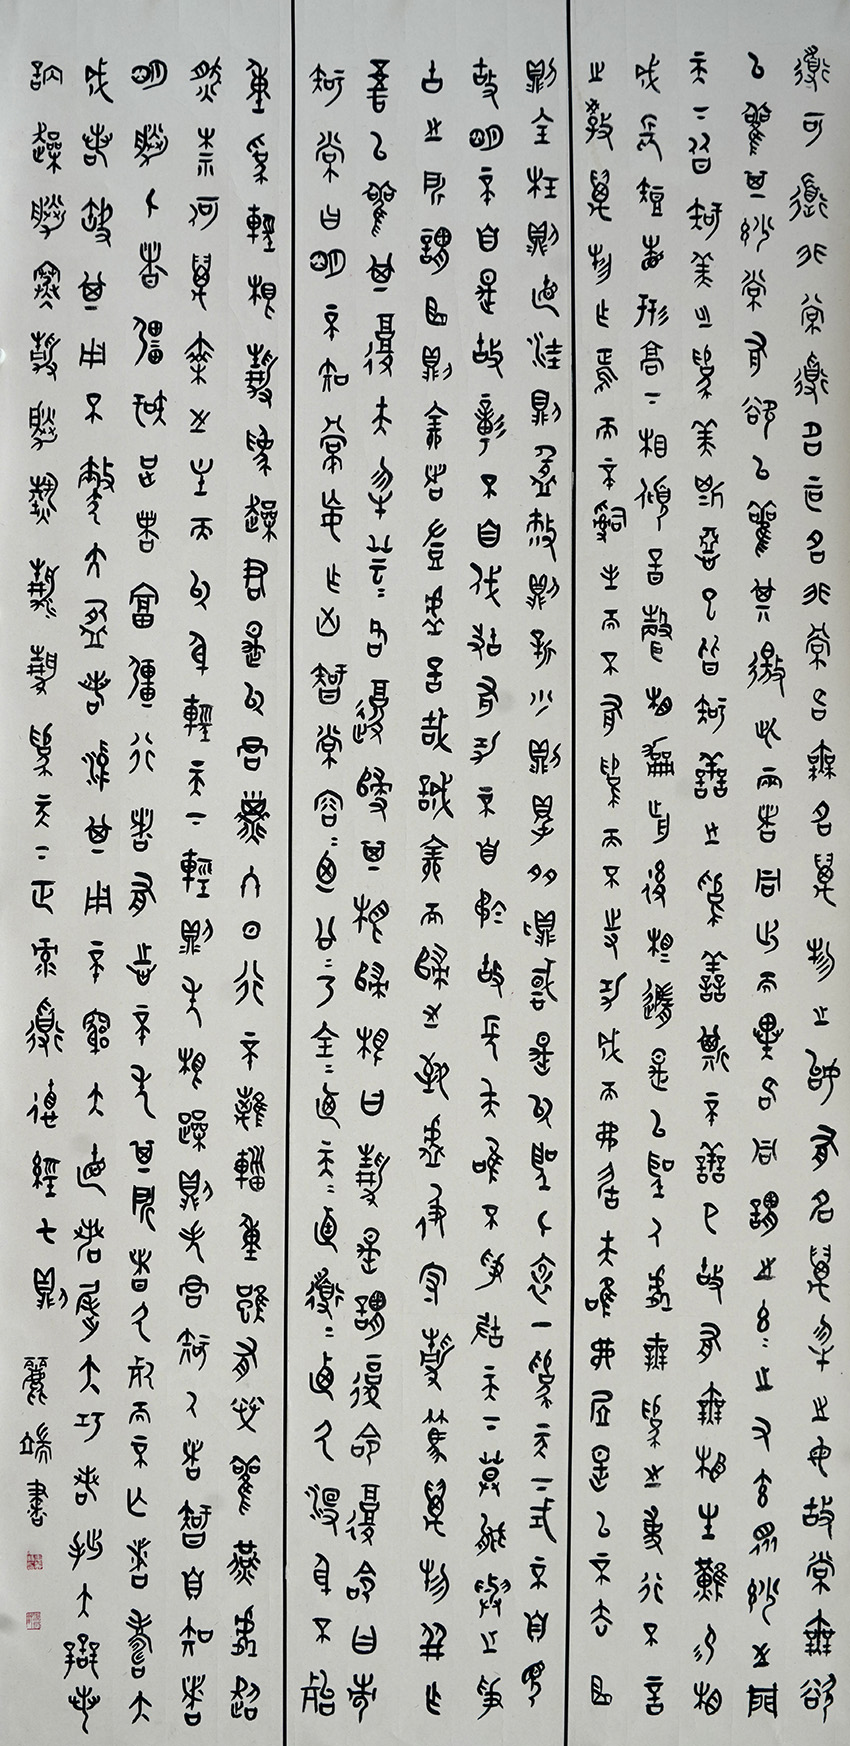 道可道非常道名可名非常名無名萬物之始有名萬物之母故常無欲
以觀其妙常有欲以觀其徼此兩者同出而異名同謂之玄玄之又玄眾妙之門
天下皆知美之為美斯惡已皆知善之為善斯不善已故有無相生難易相
成長短相形高下相傾音聲相和前後相隨是以聖人處無為之事行不言
之教萬物作焉而不辭生而不有為而不恃功成而弗居夫唯弗居是以不去曲
則全枉則直窪則盈敝則新少則得多則惑是以聖人抱一為天下式不自見
故明不自是故彰不自伐故有功不自矜故長夫唯不爭故天下莫能與之爭
古之所謂曲則全者豈虛言哉誠全而歸之致虛極守靜篤萬物並作
吾以觀其復夫物芸芸各復歸其根歸根曰靜是謂復命復命曰常
知常曰明不知常妄作凶知常容容乃公公乃全全乃天天乃道道乃久沒身不殆
重為輕根靜為躁君是以君子終日行不離輜重雖有榮觀燕處超
然奈何萬乘之主而以身輕天下輕則失根躁則失君知人者智自知者
明勝人者彊知足者富彊行者有志不失其所者久死而不亡者壽大
成若缺其用不弊大盈若沖其用不窮大直若屈大巧若拙大辯若
訥躁勝寒靜勝熱清靜為天下正道德經七則麗端書